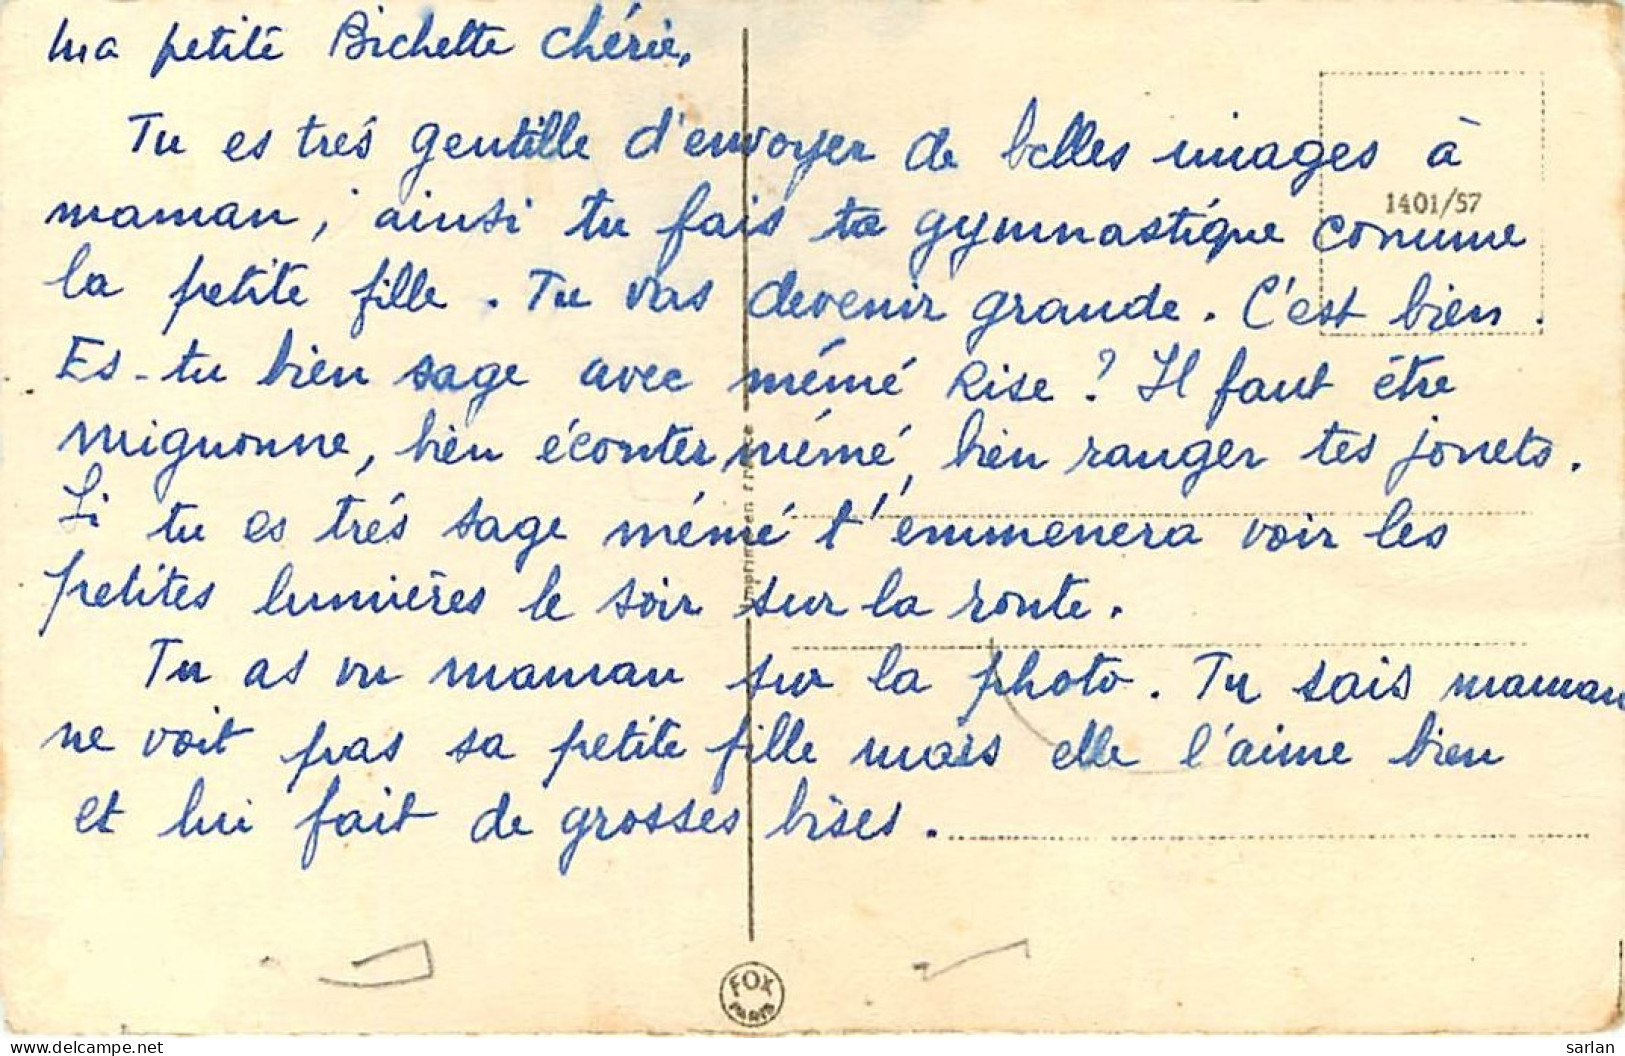 Ma petite Bichette chérie,
Tu es trés gentille d'envoyer de belles images à
maman, ainsi tu fais ta gymnastique comme
1401/57
la petite fille. Tu vas devenir grande. C'est bien.
Es-tu bien sage avec mémé Rise ? Il faut être
mignonne, bien écouter mémé, bien ranger tes jouets.
Si tu es trés sage mémé t'emmenera voir les
petites lumières le soir sur la route.
Imprimé en France
Tu as vu maman sur la photo. Tu sais maman
ne voit pas sa petite fille mais elle l'aime bien
et lui fait de grosses bises.
FOX
PARIS
www.delcampe.net
sarlan